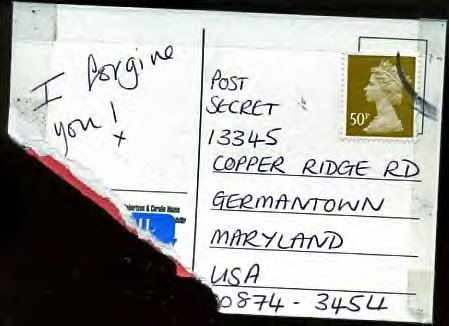 I forgive
you!
x
POST
SECRET
13345
COPPER RIDGE RD
GERMANTOWN
MARYLAND
USA
0874-3454
50P